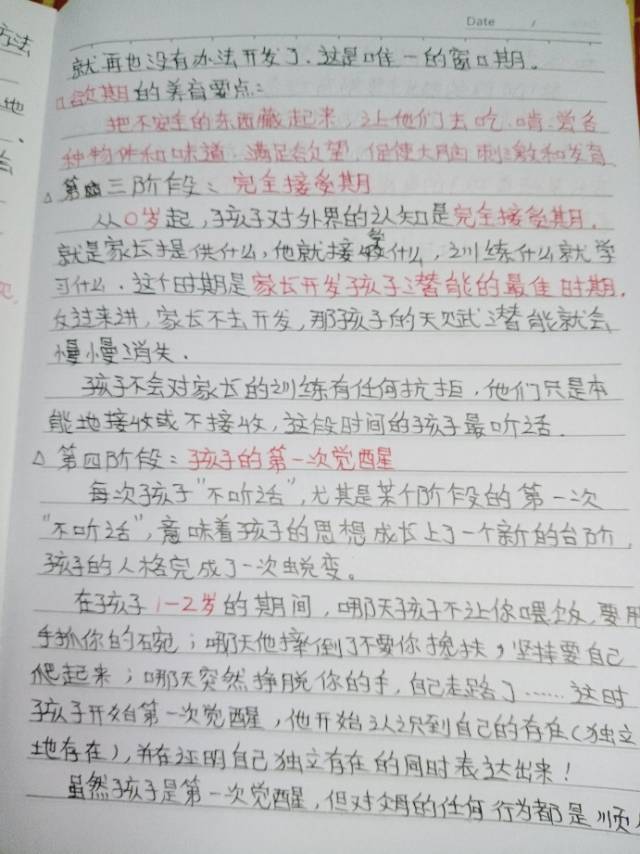 Date /
方法
他
就再也没有办法开发了.这是唯一的窗口期。
口欲期的养育要点:
把不安全的东西藏起来,让他们去吃.啃.尝各
种物体和味道.满足欲望,促使大脑刺激和发育
△第三阶段:完全接受期
从0岁起,孩子对外界的认知是完全接受期.
就是家长提供什么,他就接受什么,训练什么就学
习什么.这个时期是家长开发孩子潜能的最佳时期.
反过来讲,家长不去开发,那孩子的天赋潜能就会
慢慢消失.
孩子不会对家长的训练有任何抗拒,他们只是本
能地接收或不接收,这段时间的孩子最听话.
△第四阶段:孩子的第一次觉醒
每次孩子"不听话",尤其是某个阶段的第一次
"不听话",意味着孩子的思想成长上了一个新的台阶,
孩子的人格完成了一次蜕变。
在孩子1-2岁的期间,哪天孩子不让你喂饭,要用
手抓你的碗;哪天他摔倒了不要你搀扶,坚持要自己
爬起来;哪天突然挣脱你的手,自己走路了……这时
孩子开始第一次觉醒,他开始认识到自己的存在(独立
地存在),并在证明自己独立存在的同时表达出来!
虽然孩子是第一次觉醒,但对父母的任何行为都是"顺从